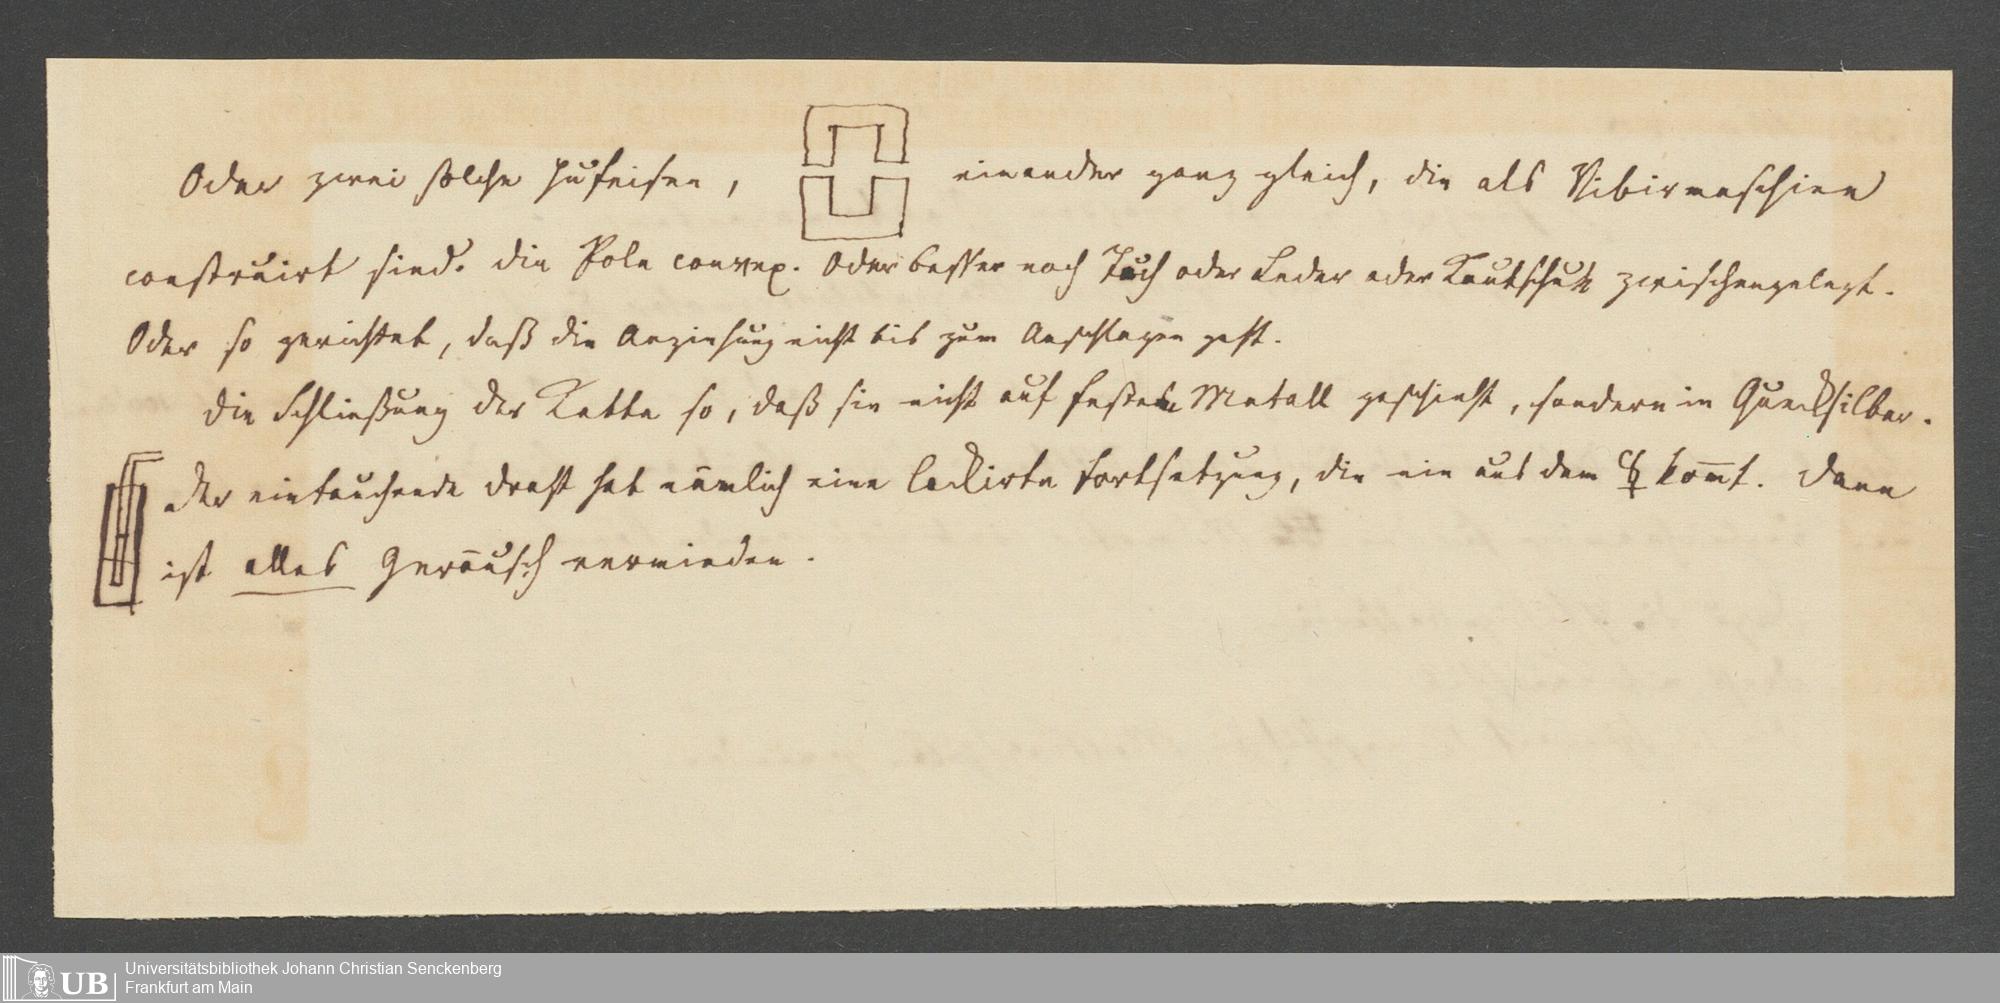 Oder zwei solche Hufeisen, einander ganz gleich, die als Vibirmaschine
construirt sind. die Pole convex. Oder besser noch Tuch oder Leder oder Kautschuk zwischengelegt.
Oder so gerichtet, daß die Anziehung nicht bis zum Anschlagen geht.
die Schließung der Kette so, daß sie nicht auf festem Metall geschieht, sondern in Quecksilber.
der eintauchende Draht hat nämlich eine lackirte Fortsetzung, die nie aus dem ☿ kom̅t. Dann
ist alles Geräusch vermieden.
Universitätsbibliothek Johann Christian Senckenberg
Frankfurt am Main
UB